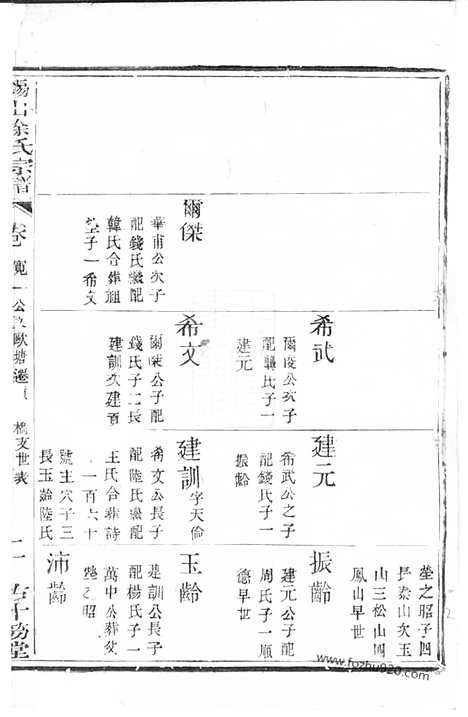 塋之昭子四
長泰山次玉
山三松山四
鳳山早世
希武
爾俊公次子
配龔氏子一
建元
建元
希武公之子
配錢氏子一
振齡
振齡
建元公子配
周氏子一順
德早世
爾傑
華甫公次子
配錢氏繼配
韓氏合葬祖
塋子一希文
希文
爾傑公子配
錢氏子二長
建訓次建
建訓字天倫
希文公長子
配陸氏繼配
王氏合葬詩
一百六十
號主穴子三
長玉齡陸氏
玉齡
建訓公長子
配楊氏子一
萬中公葬父
塋之昭
沛齡
湯山徐氏宗譜
卷
寬一公
歐塘遷
橋支世表
二
www.fozhu920.com